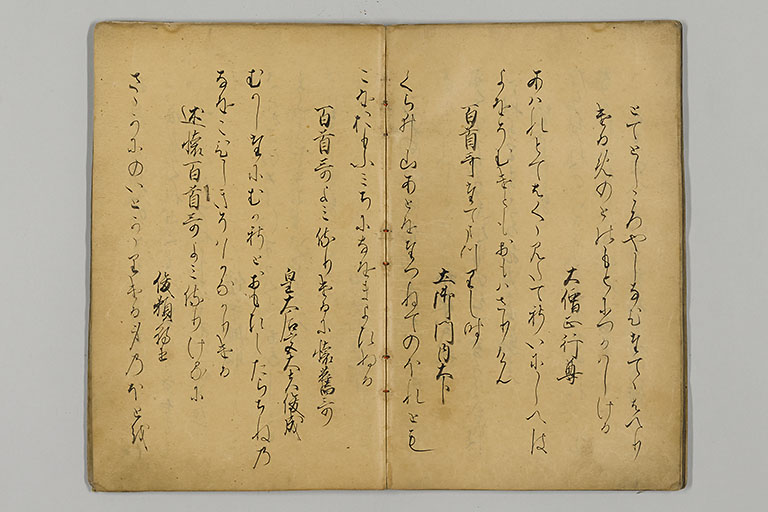 とてとしころやしなひたてゝ侍り
ける めのとのもとにつかはしける
大僧正行尊
あはれとてはくゝみたてし いにしへは
よをそむけともおもはさりけん
百首哥たてまつりし時
土御門内大臣
くらゐ山あとをたつねてのほれとも
こをおもふみちになをまよひぬる
百首哥よみ侍りけるに懐舊哥
皇太后宮大夫俊成
むかしたにむかしとおもひしたらちねの
なをこひしきそはかなかりける
述懐百首哥よみ侍りけるに
俊頼朝臣
さゝかにのいとかゝりける身のほとを